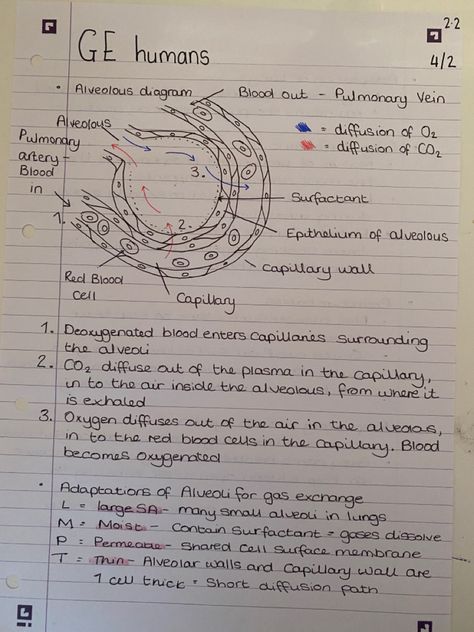 2.2
GE humans
4/2
• Alveolous diagram
Blood out - Pulmonary Vein
Alveolous
Pulmonary
artery -
Blood
in
= diffusion of O2
= diffusion of CO2
3.
Surfactant
1.
2.
Epithelium of alveolous
Capillary wall
Red Blood
Cell
Capillary
1. Deoxygenated blood enters capillaries surrounding
the alveoli
2. CO2 diffuse out of the plasma in the capillary,
in to the air inside the alveolous, from where it
is exhaled
3. Oxygen diffuses out of the air in the alveolas,
in to the red blood cells in the capillary. Blood
becomes oxygenated
• Adaptations of Alveoli for gas exchange
L = large SA - many small alveoli in lungs
M = Moist - Contain Surfactant = gases dissolve
P = Permeable - Shared Cell Surface membrane
T = Thin - Alveolar walls and Capillary wall are
1 cell thick = Short diffusion path